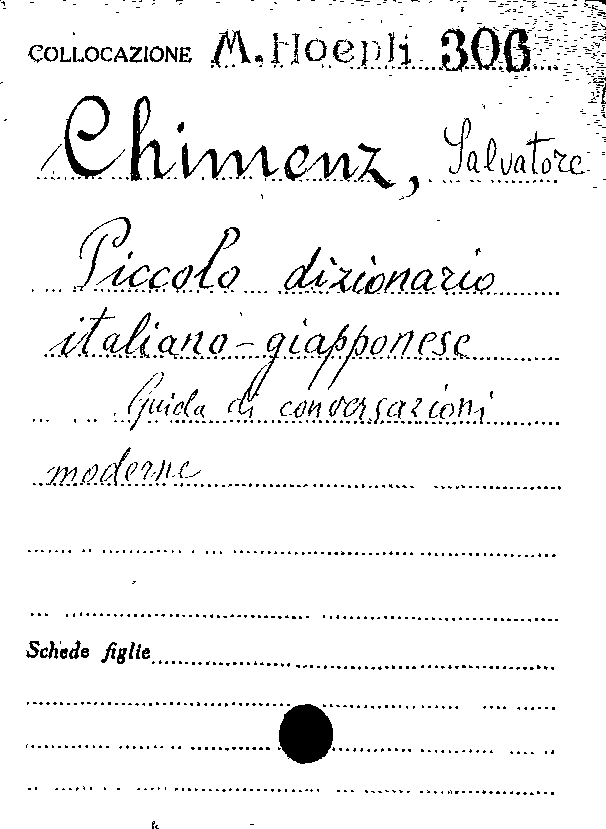 COLLOCAZIONE M. Hoepli 306
Chimenz, Salvatore
Piccolo dizionario
italiano-giapponese
Guida di conversazioni
moderne
Schede figlie